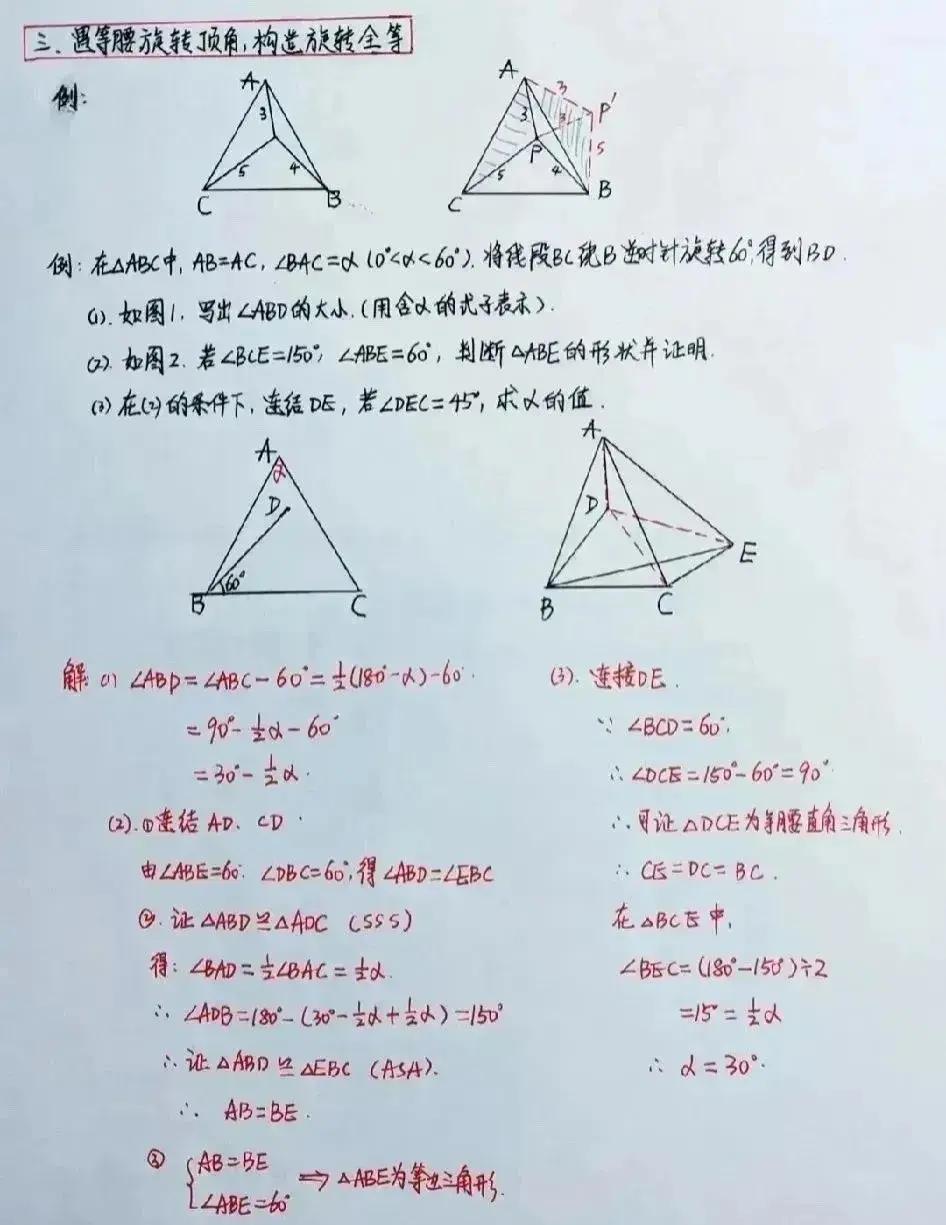 三、遇等腰旋转顶角,构造旋转全等
例:
A
3
5
4
C
B
A
3
P'
3
3
5
P
5
4
C
B
例: 在△ABC中, AB=AC, ∠BAC=α (0°<α<60°). 将线段BC绕B逆时针旋转60°,得到BD.
(1). 如图1, 写出∠ABD的大小.(用含α的式子表示).
(2). 如图2. 若∠BCE=150°, ∠ABE=60°, 判断△ABE的形状并证明.
(3) 在(2)的条件下, 连结DE, 若∠DEC=45°, 求α的值.
A
α
D
60°
B
C
A
D
E
B
C
解: (1) ∠ABD=∠ABC-60°=½(180°-α)-60°.
=90°-½α-60°
=30°-½α.
(2).①连结AD、CD.
由∠ABE=60°. ∠DBC=60°,得∠ABD=∠EBC
②. 证△ABD≌△ADC (SSS)
得: ∠BAD=½∠BAC=½α.
∴ ∠ADB=180°-(30°-½α+½α)=150°
∴ 证△ABD≌△EBC (ASA).
∴ AB=BE.
③ {AB=BE
∠ABE=60° ⇒ △ABE为等边三角形.
(3). 连接DE.
∵ ∠BCD=60°.
∴ ∠DCE=150°-60°=90°.
∴ 可证△DCE为等腰直角三角形.
∴ CE=DC=BC.
在△BCE中,
∠BEC=(180°-150°)÷2
=15°=½α
∴ α=30°.